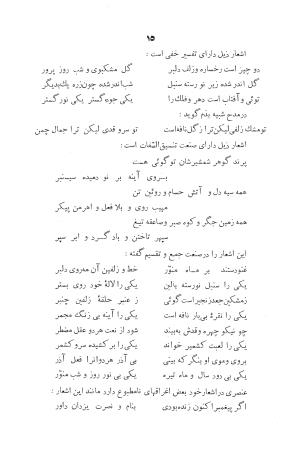 ۱۵
اشعار زیل دارای تفسیر خفی است :
دو چیز است رخساره وزلف دلبر گل مشکبوی و شب روز پرور
گل غنده شده زیر نو رسته سنبل شب‌اندرشده چون‌زره یک‌بدیگر
توئی و آفتاب است دهر وفلك‌را یکی جودگستر یکی نورگستر
درمدح شبیه بذم گوید :
تومشك زلفی‌لیکن‌ترا زگل‌نافه‌است توسرو قدی لیکن ترا جمال چمن
اشعار زیل دارای صنعت تنسیق‌الصفات است :
پرند گوهر شمشیرشان توگوئی هست
بسروی آینه بر نو دمیده سیسنبر
همه سیه دل و آتش حسام و روئین تن
مهیب روی و بلا فعل و اهرمن پیکر
همه زمین جگر و کوه صبر وصاعقه تیغ
سپهر تاختن و باد گرد و ابر سپر
این اشعار را درصنعت جمع و تقسیم‌گفته :
غنودستند بر ماه منوّر خط و زلفین آن مه‌روی دلبر
یکی را سنبل نورسته بالین یکی را لالهٔ خود روی بستر
زمشکین‌جعدزنجیراست‌گوئی ز عنبر حلقهٔ زلفین چنبر
یکی را نقرهٔ بی‌بار نافه است یکی را آینه بی زنگ مجمر
چو نیکو چهره وقدش به‌بیند شود از نعت هردو عقل مضطر
یکی را لعبت کشمیر خواند یکی را بر کشیده سرو کشمر
بروی وموی او بنگر که بینی بی آذر هردوانرا فعل آذر
یکی بی دود سال و ماه تیره یکی بی نور روز و شب منوّر
عنصری دراشعارخود بعض اغراقهای نامطبوع دارد مانند این اشعار :
اگر پیغمبر اکنون زنده‌بودی بنام و نصرت یزدان داور